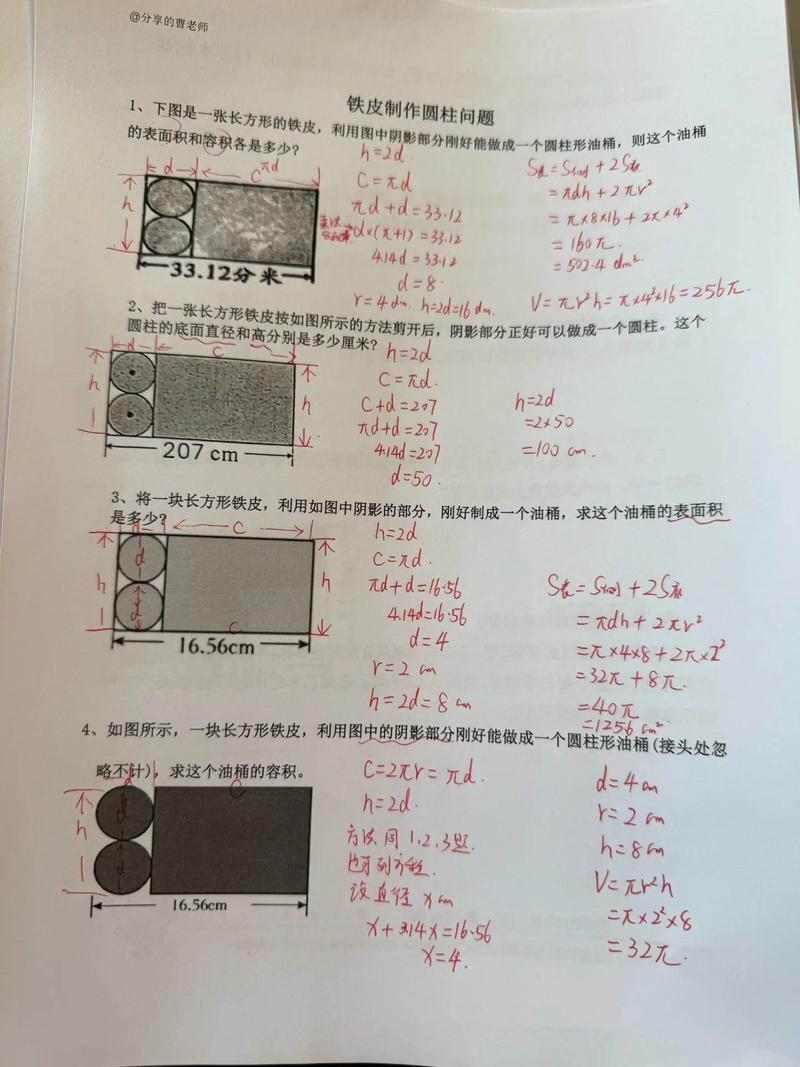 @分享的曹老师
铁皮制作圆柱问题
1、下图是一张长方形的铁皮，利用图中阴影部分刚好能做成一个圆柱形油桶，则这个油桶
的表面积和容积各是多少?
d C πd
h
33.12分米
h=2d
C=πd
πd+d=33.12
d×(π+1)=33.12
4.14d=33.12
d=8
r=4dm h=2d=16dm
S表=S侧+2S底
=πdh+2πr²
=π×8×16+2π×4²
=160π
=502.4dm²
V=πr²h=π×4²×16=256π
2、把一张长方形铁皮按如图所示的方法剪开后，阴影部分正好可以做成一个圆柱。这个
圆柱的底面直径和高分别是多少厘米?
d C
h h
207 cm
h=2d
C=πd.
C+d=207
πd+d=207
4.14d=207
d=50.
h=2d
=2×50
=100 cm.
3、将一块长方形铁皮，利用如图中阴影的部分，刚好制成一个油桶，求这个油桶的表面积
是多少?
C
h d h
d
C
16.56cm
h=2d
C=πd.
πd+d=16.56
4.14d=16.56
d=4
r=2 cm
h=2d=8 cm
S表=S侧+2S底
=πdh+2πr²
=π×4×8+2π×2²
=32π+8π.
=40π
=1256 cm²
4、如图所示，一块长方形铁皮，利用图中的阴影部分刚好能做成一个圆柱形油桶(接头处忽
略不计)，求这个油桶的容积。
d C
h d
d
16.56cm
C=2πr=πd.
h=2d.
方法同1,2,3题.
也可列方程.
设直径xcm
x+3.14x=16.56
x=4.
d=4cm
r=2cm
h=8cm
V=πr²h
=π×2²×8
=32π.